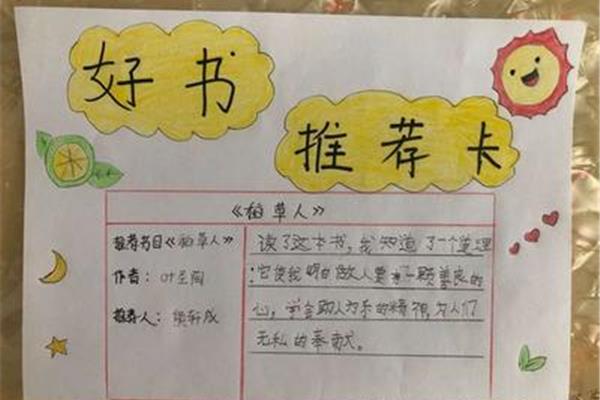 好书
推荐卡
《稻草人》
推荐书目《稻草人》
作者：叶圣陶
推荐人：轩成
读了这本书，我知道了一个道理
：它使我明白做人要有一颗善良的
心，学会助人为乐的精神，为人们
无私的奉献。